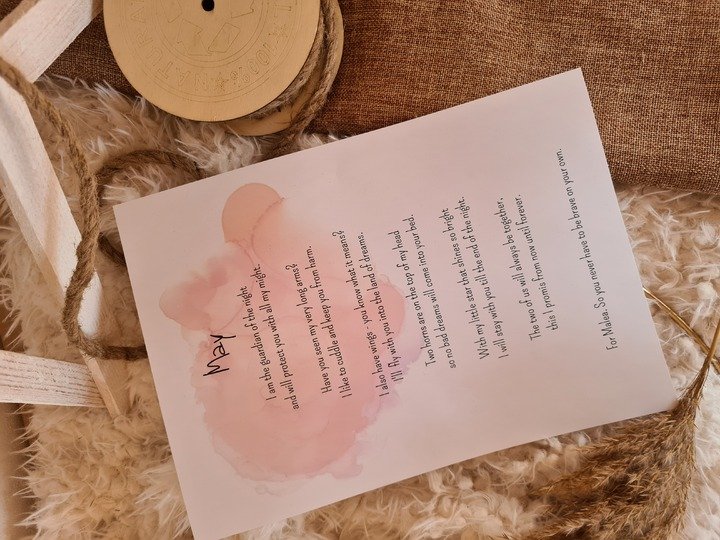 May
I am the guardian of the night
and will protect you with all my might.
Have you seen my very long arms?
I like to cuddle and keep you from harm.
I also have wings - you know what it means?
I'll fly with you into the land of dreams.
Two horns are on the top of my head
so no bad dreams will come into your bed.
With my little star that shines so bright
I will stay with you till the end of the night.
The two of us will always be together,
this I promis from now until forever.
For Malea. So you never have to be brave on your own.
100% NATURAL